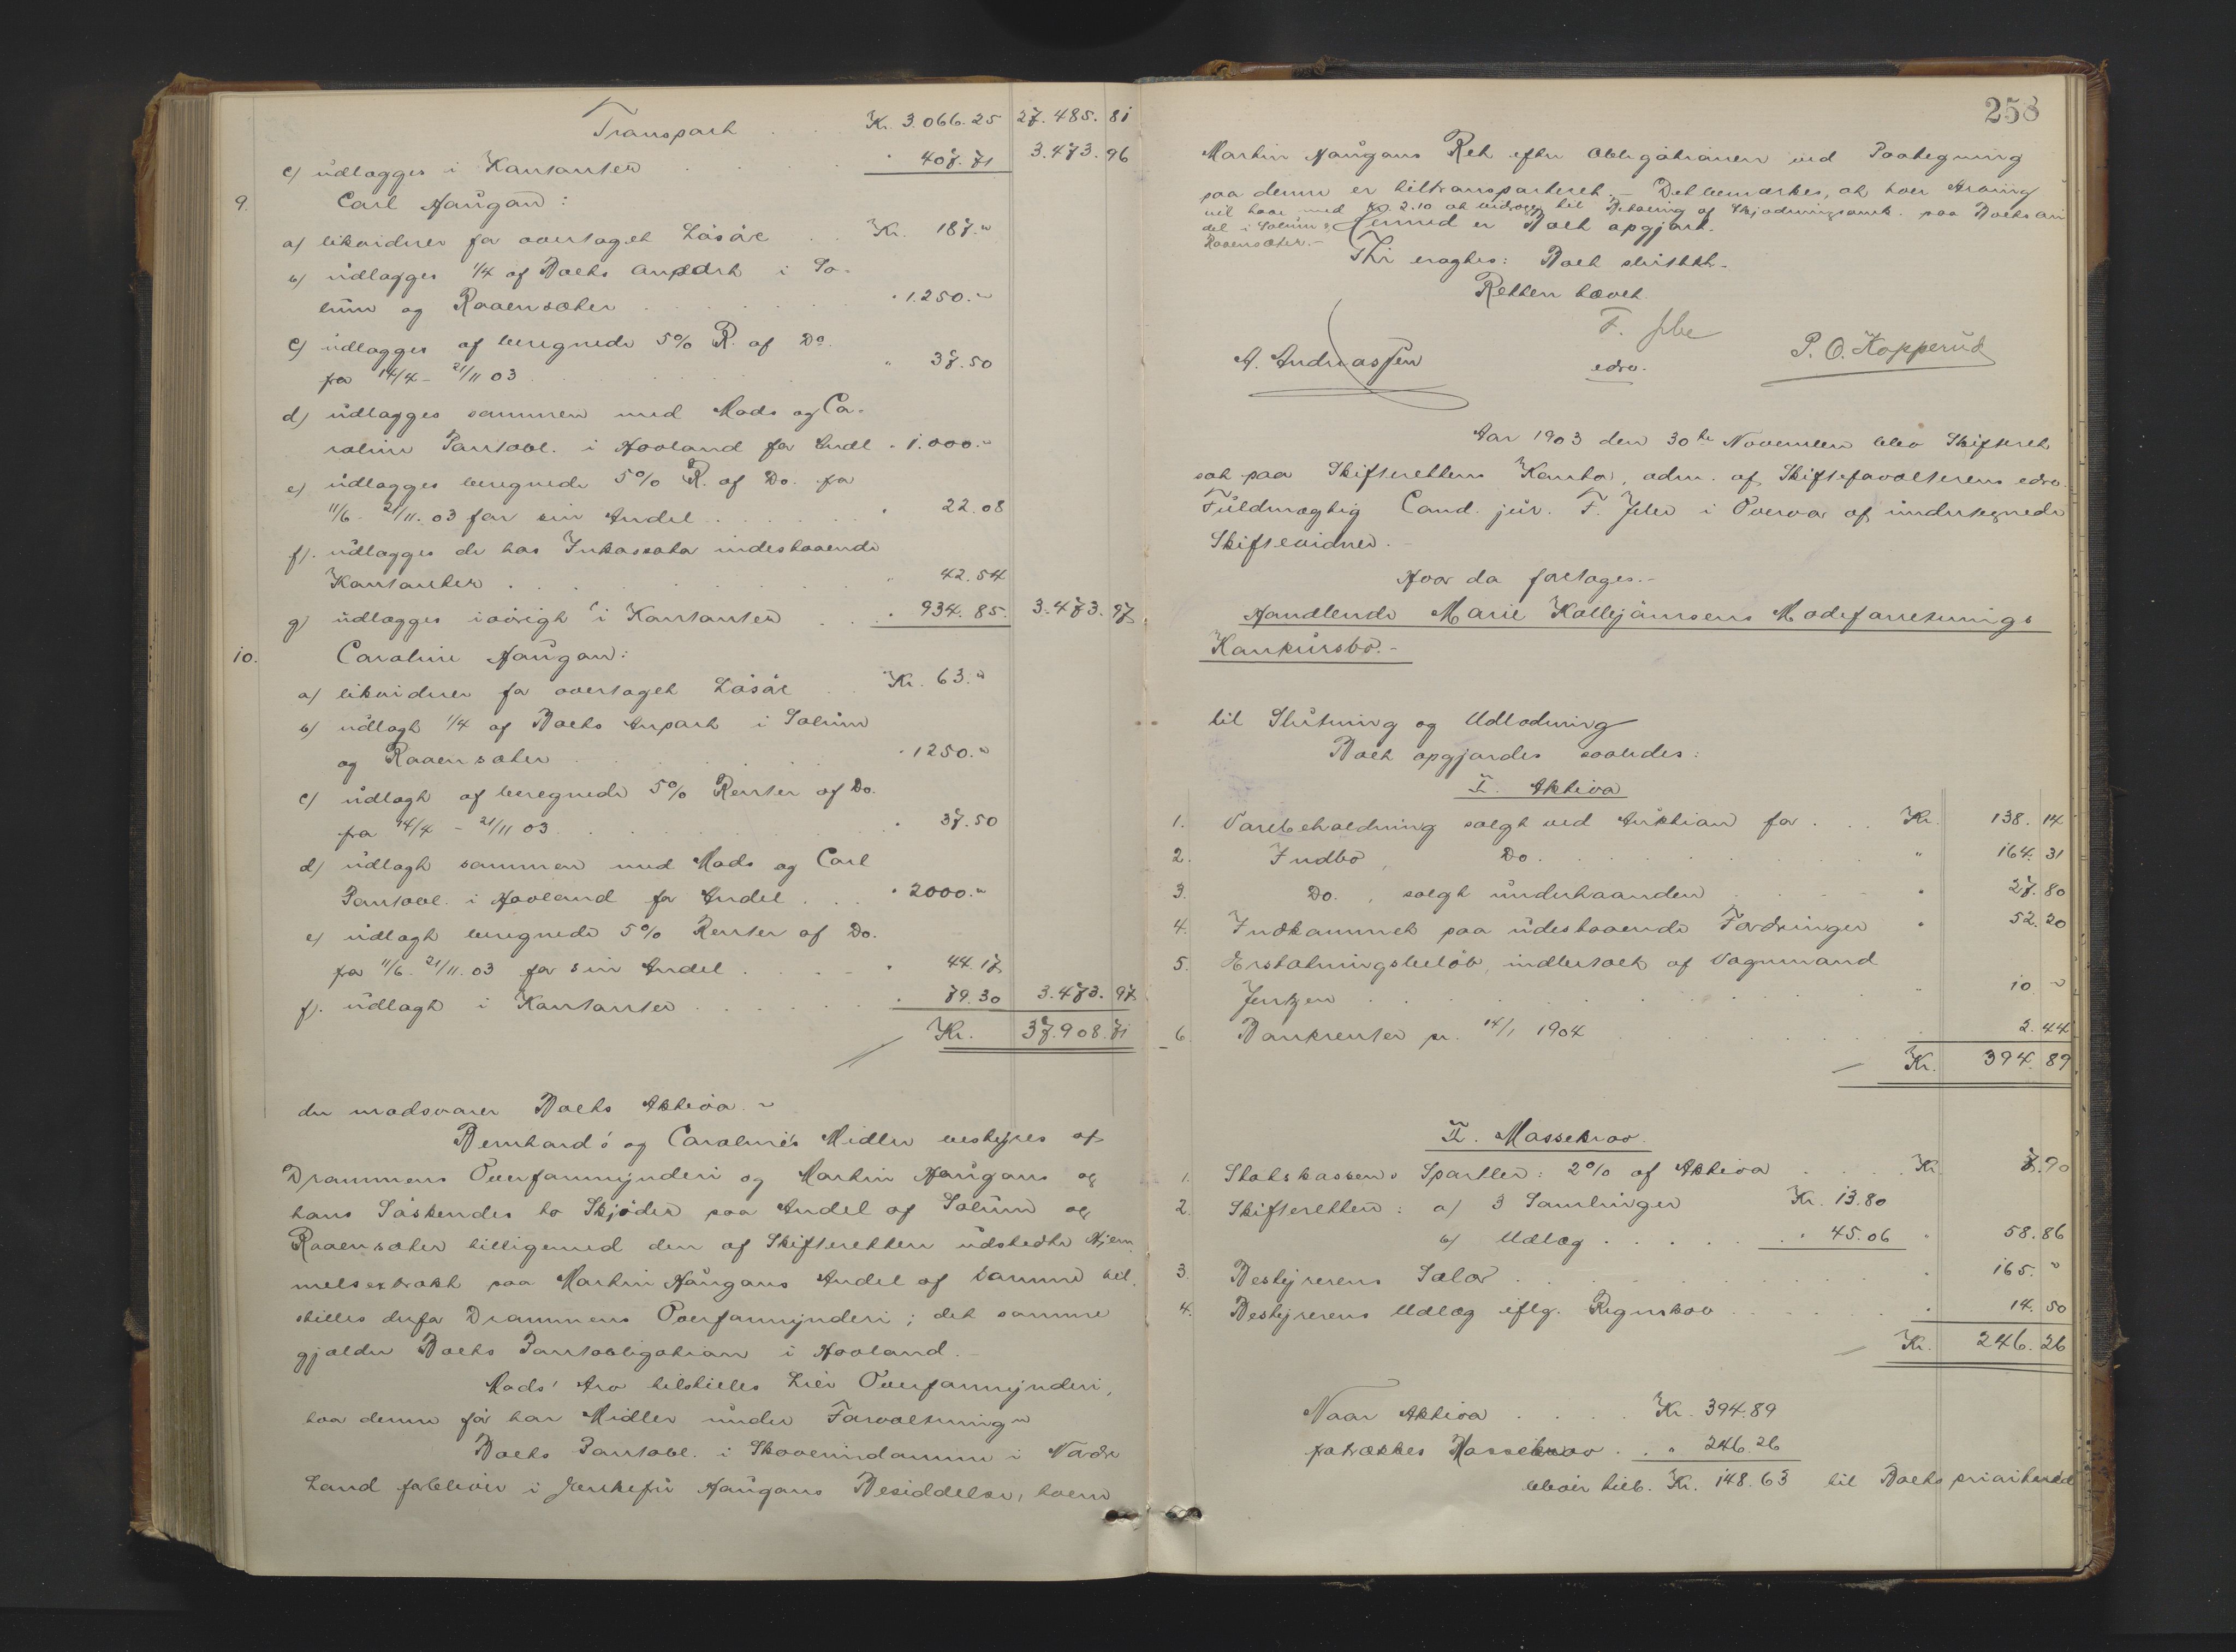 Transport . . Kr. 3.066.25 27.485.81
e) udlægges i Kontanter . . . " 407.71 3.473.96
9. Carl Haugan:
a) likviderer for overtaget Løsøre . . Kr. 187.-
b) udlægges 1/4 af Boets Anpart i So-
lum og Raaensæter . . . " 1.250.-
c) udlægges af beregnede 5% R. af Do.
fra 14/4 - 21/11 03 . . . " 37.50
d) udlægges sammen med Mads og Ca-
roline Pantobl. i Hovland for Andl " 1.000.-
e) udlægges beregnede 5% R. af Do. fra
11/6 - 21/11. 03 for sin Andel . . . " 22.08
f). udlægges de hos Inkassator indestaaende
Kontanter . . . " 42.54
g) udlægges iøvrigt i Kontanter . . . " 934.85. 3.473.97
10. Caroline Haugan:
a) likviderer for overtaget Løsøre Kr. 63.-
b) udlagt 1/4 af Boets Anpart i Solum
og Raaensæter . . . " 1250.-
c) udlagt af beregnede 5% Renter af Do.
fra 14/4 - 21/11 03 . . . " 37.50
d) udlagt sammen med Mads og Carl
Pantobl. i Hovland for Andel . . . " 2000.-
e) udlagt beregnede 5% Renter af Do.
fra 11/6 - 21/11. 03 for sin Andel . . . " 44.17
f). udlagt i Kontanter . . . " 79.30 3.473.97
Kr. 37.908.71
der modsvarer Boets Aktiva.-
Bernhard's og Caroline's Midler bestyres af
Drammens Overformynderi og Martin Haugans og
hans Søskendes to Skjøder paa Andel af Solum og
Raaensæter tilligemed den af Skifteretten udstedte Hjem-
melsextrakt paa Martin Haugans Andel af samme til-
stilles derfor Drammens Overformynderi; det samme
gjælder Boets Pantobligation i Hovland.-
Mads' Arv tilstilles Lier Overformynderi,
hvor denne før har Midler under Forvaltning.-
Boets Pantobl. i Skoveiendomme i Nordre
Land forbliver i Enkefru Haugans Besiddelse, hvem
258
Martin Haugans Ret efter Obligationen ved Paategning
paa denne er tiltransporteret.- Det bemærkes, at hver Arving
vil have med Kr. 2.10 at bidrage til Bekostning af Skjødningsomk. paa Boets An-
del i Solum & Hermed er Boet opgjort.
Raaensæter.-
Thi eragtes: Boet sluttet.-
Retten hævet.
F. Ihle
A. Andreassen edsv. P. O. Kopperud
Aar 1903 den 30te November blev Skifteret
sat paa Skifterettens Kontor, adm. af Skifteforvalterens edsv.
Fuldmægtig Cand. jur. F. Ihle i Overvær af undertegnede
Skiftevidner.-
Hvor da foretages.-
Handlende Marie Kolbjørnsens Modeforretnings
Konkursbo.-
til Slutning og Udlodning
Boet opgjordes saaledes:
I. Aktiva
1. Varebeholdning solgt ved Auktion for . . . Kr. 138.14
2. Indbo, Do. . . . " 164.31
3. Do., solgt underhaanden . . . " 27.80
4. Indkommet paa udestaaende Fordringer " 52.20
5. Erstatningsbeløb, indbetalt af Vognmand
Jentzen . . . " 10 -
6. Bankrenter pr. 14/1 1904 . . . 2.44
Kr. 394.89
II. Massekrav.
1. Statskassens Sportler: 2% af Aktiva . . . Kr. 7.90
2. Skifteretten: a) 3 Samlinger Kr. 13.80
b) Udlæg . . . " 45.06 " 58.86
3. Bestyrerens Salær . . . " 165.-
4. Bestyrerens Udlæg iflg. Regnskab . . . " 14.50
Kr. 246.26
Naar Aktiva . . . Kr. 394.89
fratrækkes Massekrav . . " 246.26
bliver tilb. Kr. 148.63 til Boets prioriterede